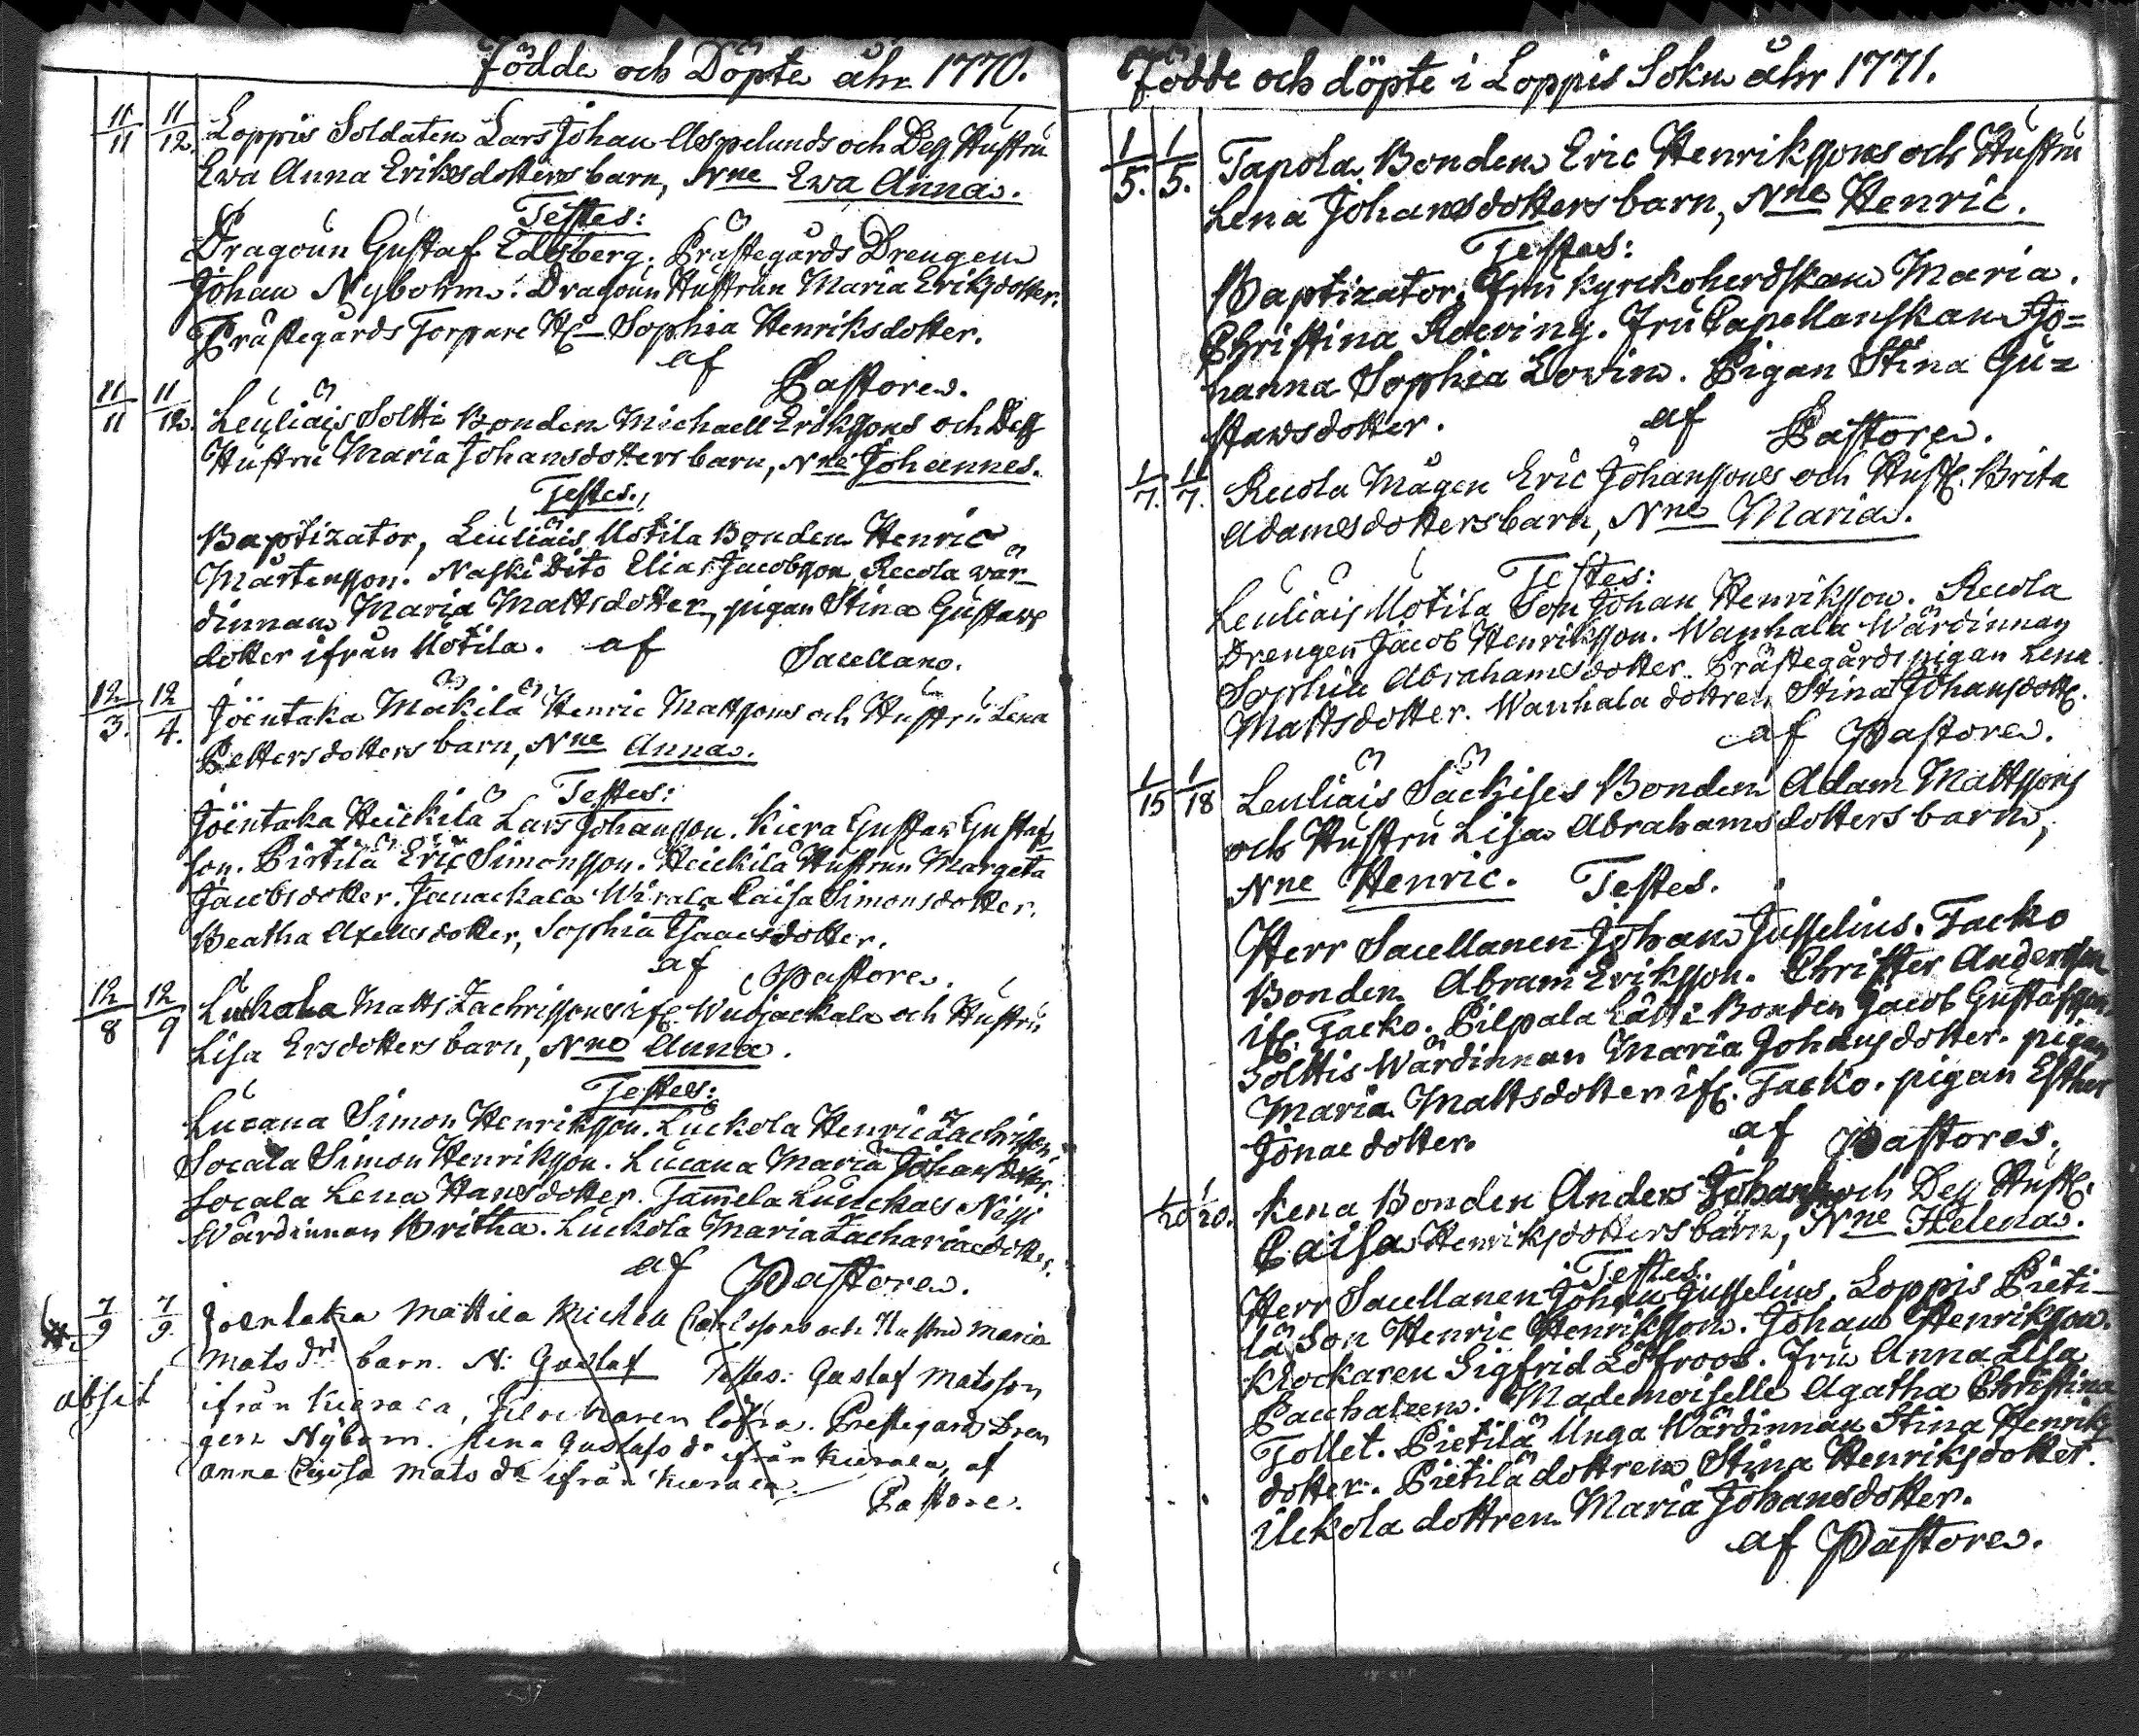 Födde och Döpte åhr 1770.
11/11 11/12. Loppis Soldaten Lars Johan Aspelunds och Dess Hustru
Ewa Anna Eriksdotters barn, Nne Ewa Anna.
Testes:
Dragoun Gustaf Edlsberg. Prästegårds Drengen
Johan Nybohm. Dragoun Hustrun Maria Eriksdotter.
Prästegårds Torpare H: Sophia Henriksdotter.
af Pastore.
11/11 11/12. Leuliais Soltti Bonden Michaell Erikssons och Dess
Hustru Maria Johansdotters barn, Nne Johannes.
Testes.
Baptizator, Leuliais Uotila Bonden Henric
Mårtensson. Naski Dito Elias Jacobsson, Recola wär-
dinnan Maria Mattsdotter, pigan Stina Gustafs
dotter ifrån Uotila. af Sacellano.
12/3. 12/4. Joentaka Mäkilä Henric Mattssons och Hustru Lena
Pettersdotters barn, Nne Anna.
Testes:
Joentaka Heickilä Lars Johansson. Kiera Gustav Gustafs
son. Pirtilä Eric Simonsson. Heickilä Hustrun Margeta
Jacobsdotter. Janackala Wirala Caisa Simonsdotter.
Beatha Axellsdotter, Sophia Isaacsdotter.
af Pastore.
12/8 12/9 Luckola Matts Zachrissons if: Wuojackala och Hustru
Lisa Ersdotters barn, Nne Anna.
Testes:
Lucana Simon Henriksson. Luckola Henric Zachrisson.
Socala Simon Henriksson. Lucana Maria Johansdotter.
Socala Lena Hansdotter. Tammela Lunckas Näsi
Wärdinnan Britha. Luckola Maria Zachariaedotter.
af Pastore.
7/9 7/9. Joentaka Mattila Michel Carlssons och Hustru Maria
Mats dr barn. N: Gustaf Testes: Gustaf Matsson
absit ifrån Kierala, Klockaren Löfro. Prestegårds Dren
gen Nybom. Stina Gustafs dr ifrån Kierala, af
Anna Caisa Mats dr ifrån Kierala.
Pastore.
Födde och döpte i Loppis Sokn åhr 1771.
1/5. 1/5. Tapola Bonden Eric Henrikssons och Hustru
Lena Johansdotters barn, Nne Henric.
Testes:
Baptizator, Fru Kyrckoherdskan Maria
Christina Roering. Fru Capellanskan Jo=
hanna Sophia Lovin. Pigan Stina Gu=
stavsdotter. af Pastore.
1/7. 1/7. Recola Mågen Eric Johanssons och Hust: Brita
Adamsdotters barn, Nne Maria.
Testes:
Leuliais Uotila Son Johan Henriksson. Recola
Drengen Jacob Henriksson. Wanhala Wärdinnan
Sophia Abrahamsdotter. Prästegårds pigan Lena
Mattsdotter. Wanhala dottren Stina Johansdott:
af Pastore.
1/15 1/18 Leuliais Säckises Bonden Adam Mattssons
och Hustru Lisa Abrahamsdotters barn,
Nne Henric. Testes.
Herr Sacellanen Johan Jusselius. Tacko
Bonden Abram Eriksson. Christer Andersson
if: Tacko. Pilpala Lätti Bonden Jacob Gustafsson.
Solttis Wärdinnan Maria Johansdotter. pigan
Maria Mattsdotter if: Tacko. pigan Esther
Jonaedotter. af Pastore.
1/20 1/20. Kena Bonden Anders Johans och Dess Hust:
Caisa Henriksdotters barn, Nne Helena.
Testes.
Herr Sacellanen Johan Jusselius. Loppis Pieti-
lä Son Henric Henriksson. Johan Henriksson.
Klockaren Sigfrid Löfroos. Fru Anna Lisa
Pacchaleen. Mademoiselle Agatha Christina
Tollet. Pietilä Unga Wärdinnan Stina Henriks
dotter. Pietilä dottren Stina Henriksdotter.
Uckola dottren Maria Johansdotter.
af Pastore.